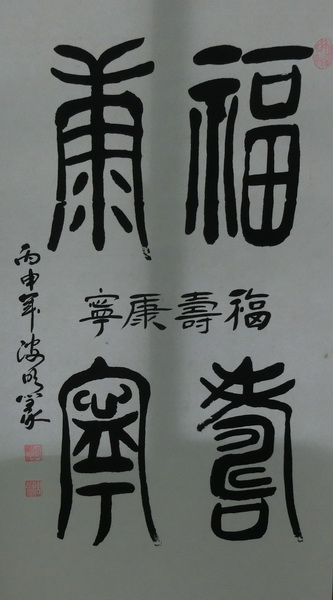 福壽
康寧
福壽康寧
丙申年波明篆